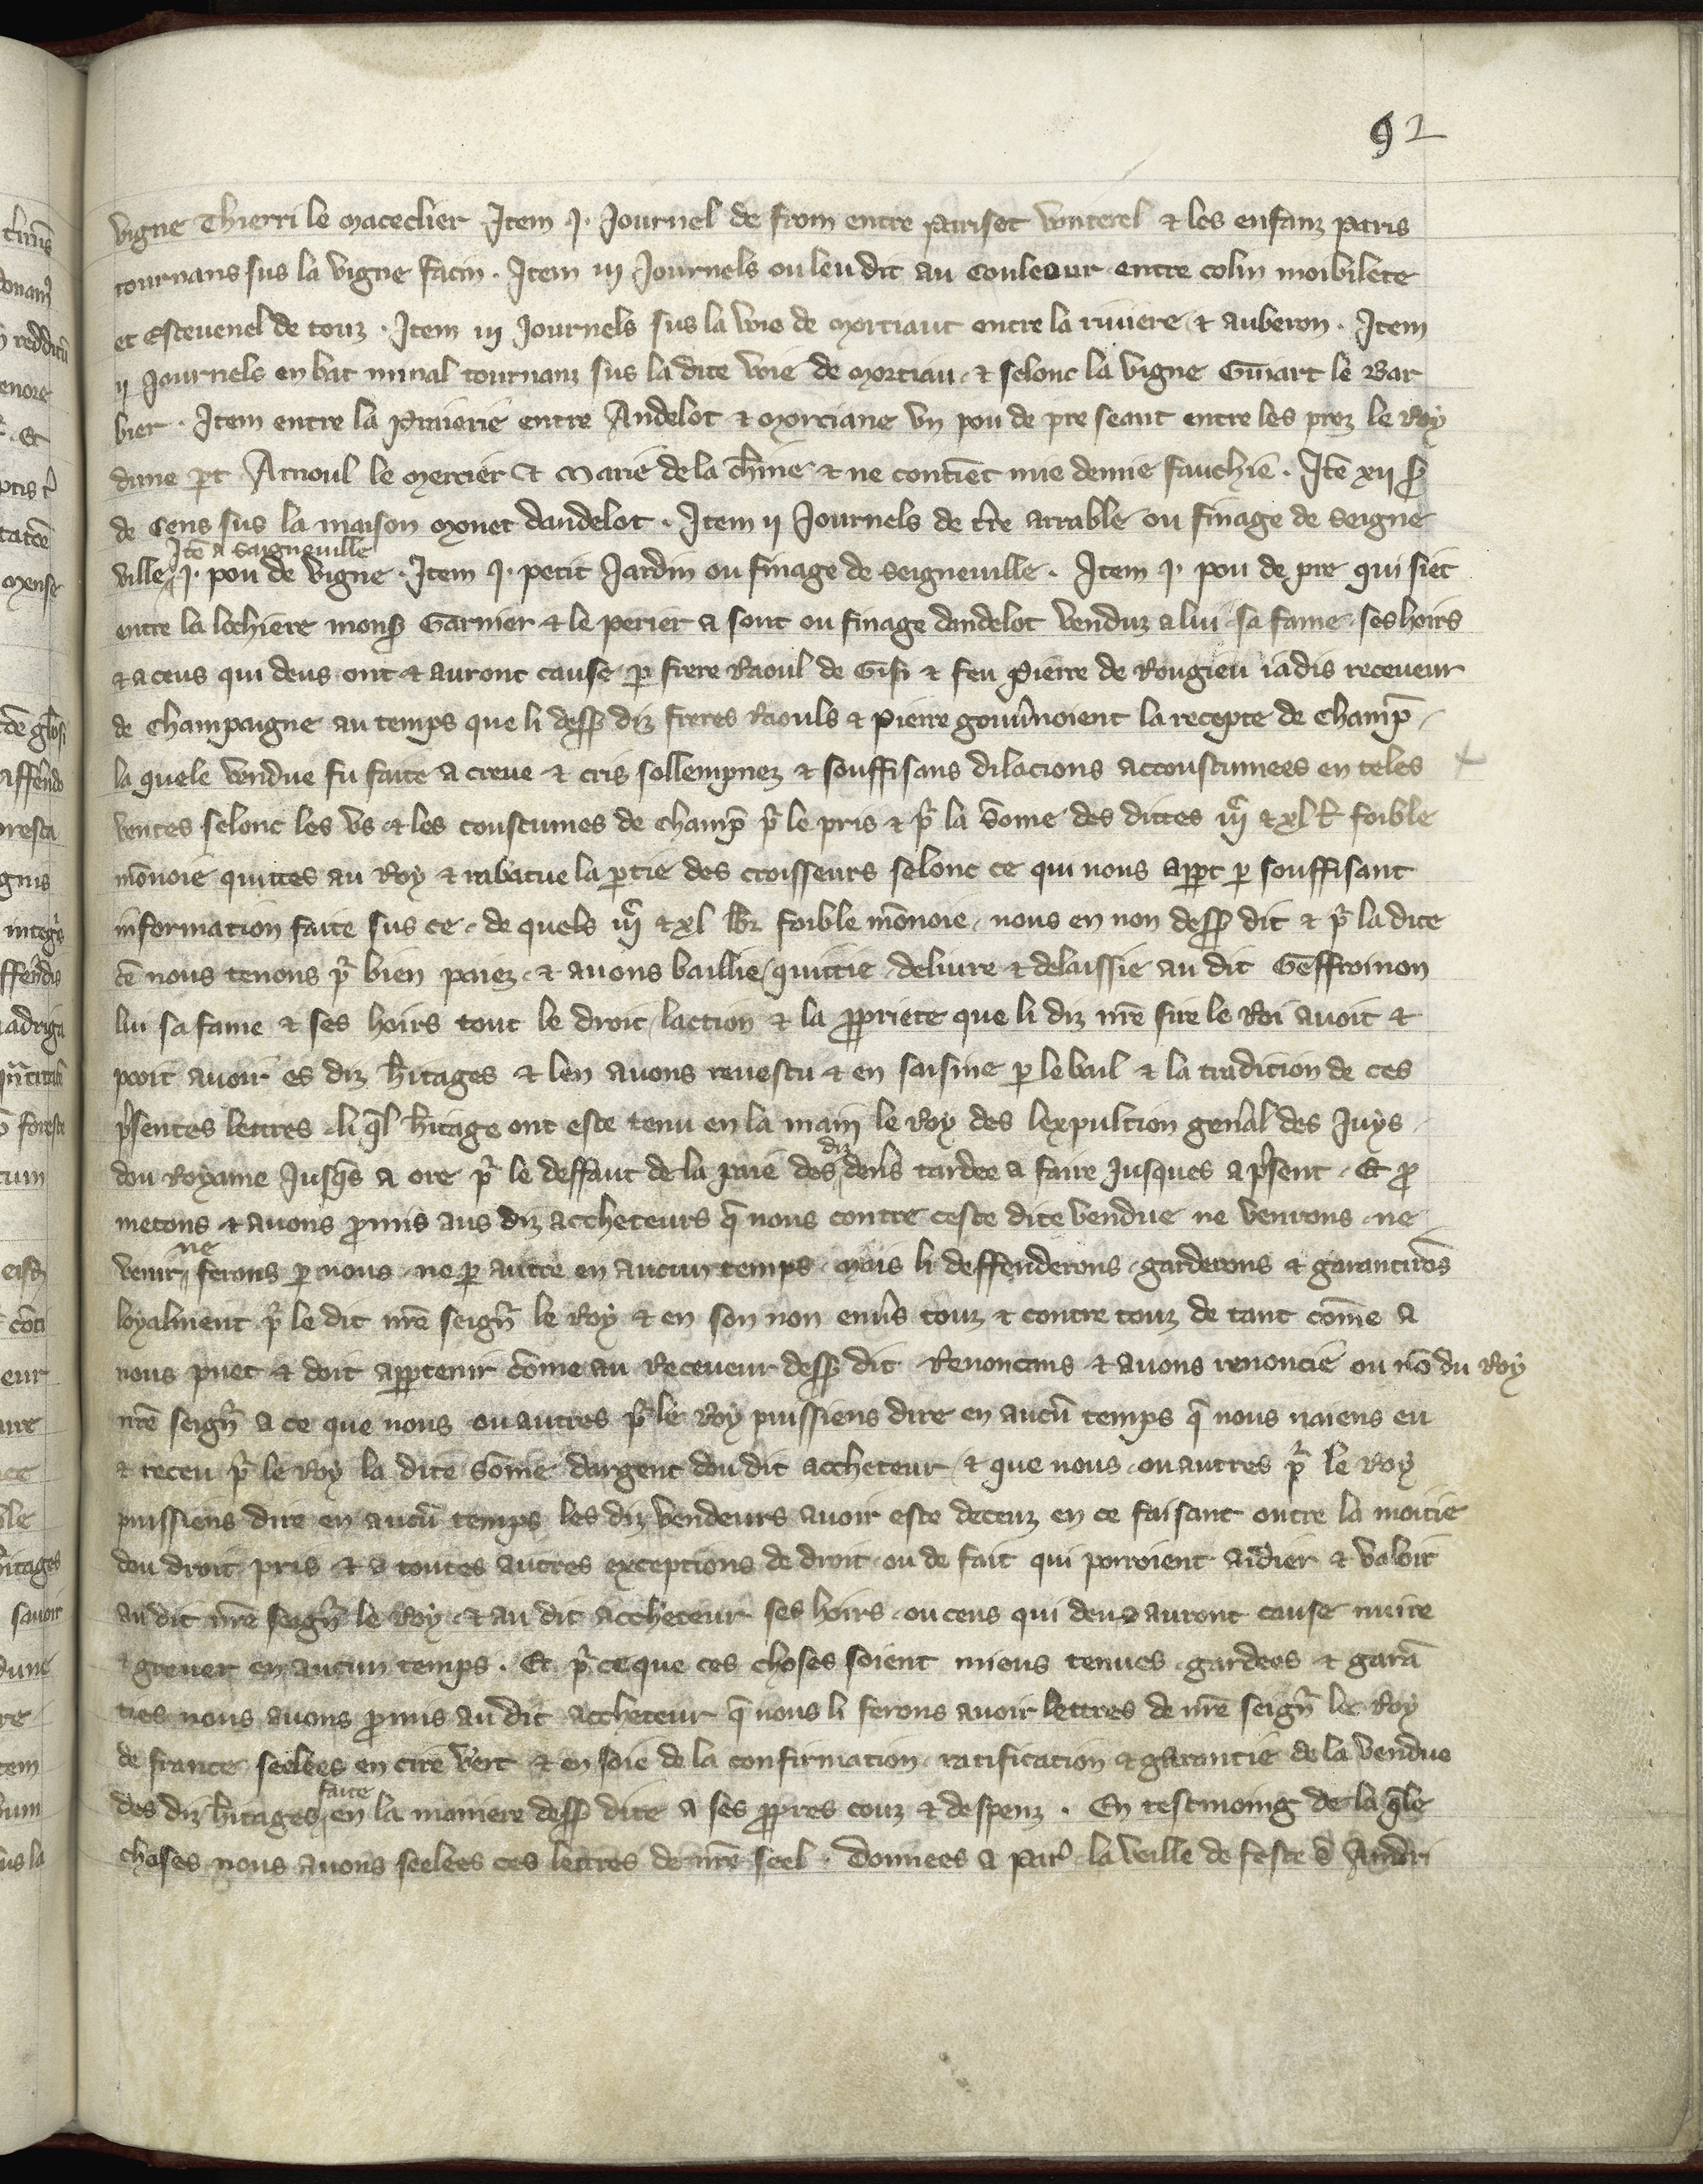 92
vigne Thierri le maceclier Item .j. Journel de from entre pariset vinterel & les enfanz paris
tournans sus la vigne facin . Item iij Journels ou leu dit au couleour entre colin moibilete
et Estevenel de touz . Item iij Journels sus la voie de morciaut entre la riviere & auberon . Item
ij Journels en bat minal tournanz sus la dite voie de morciau & selonc la vigne Guiart le Bar
bier . Item entre la praierie entre Andelot & morciane un pou de pre seant entre les prez le Roy
dune pt Arnoul le mercier & Marie de la & ne contiēt mie demie fauchie . Itē xij s
de cens sus la maison monet dandelot . Item ij Journels de t̄re arrable ou finage de seigne
Itē a Saigneville
ville .j. pou de vigne . Item .j. petit Jardin ou finage de seigneville . Item .j. pou de pre qui siet
entre la lochiere mons Garnier & le perier a sont ou finage dandelot venduz a lui sa fame ses hoirs
& a ceus qui deus ont & auront cause p frere Raoul de Gisi & feu Pierre de Rougieu iadis receveur
de Champaigne au temps que li dess diz freres Raouls & Pierre gouv̄noient la recepte de Champ̄
la quele vendue fu faite a creue & cris sollempnez & souffisans dilacions accoustumees en teles
ventes selonc les us & les coustumes de champ̄ pr le pris & pr la sōme des dittes iijc & xl l foible
mōnoie quittes au Roy & rabatue la ptie des croisseurs selonc ce qui nous appt p souffisant
information faite sus ce de quels iijc & xl lbr foible mōnoie nous en non dess dit & pr la dite
cē nous tenons pr bien paiez & avons baillie quittie delivre & delaissie au dit Geffroinon
lui sa fame & ses hoirs tout le droit laction & la ppriete que li diz nrē sire le Roi avoit &
pooit avoir es diz h̄itages & len avons revestu & en saisine p le bail & la tradicion de ces
p̄sentes lettres li q̄l h̄itage ont este tenu en la main le Roy des lexpulcion gen̄al des Juys
diz
dou Royame Jusq̄s a ore pr le deffaut de la paie des den̄s tardee a faire Jusques a p̄sent . Et p
metons & avons pmis aus diz accheteurs q̄ nous contre ceste dite vendue ne venrons ne
ne
venir ferons p nous ne p autre en aucun temps mais li deffenderons garderons & garantirōs
loyalment pr le dit nrē seign̄ le Roy & en son non env̄s touz & contre touz de tant cōme a
nous puet & doit apptenir cōme au Receveur dess dit Renoncans & avons renoncie ou nō du Roy
nrē seign̄ a ce que nous ou autres pr le Roy puissiens dire en aucū temps q̄ nous naiens eu
& receu pr le Roy la dite sōme dargent dou dit accheteur & que nous ou autres pr le Roy
puissiens dire en aucū temps les diz vendeurs avoir este deceuz en ce faisant outre la moitie
dou droit pris & a toutes autres exceptions de droit ou de fait qui porroient aidier & valoir
au dit nrē seign̄ le Roy & au dit accheteur ses hoirs ou ceus qui deus auront cause nuire
& grever en aucun temps . Et pr ce que ces choses soient mieus tenues gardees & garā
ties nous avons pmis au dit accheteur q̄ nous li ferons avoir lettres de nrē seign̄ le Roy
de france seelees en cire vert & en soie de la confirmation ratification & garantie de la vendue
faite
des diz h̄itages en la maniere dess dite a ses ppres couz & despenz . En tesmoing de la q̄le
choses nous avons seelees ces lettres de nrē seel . Donnees a Par̄ la veille de feste s Andri